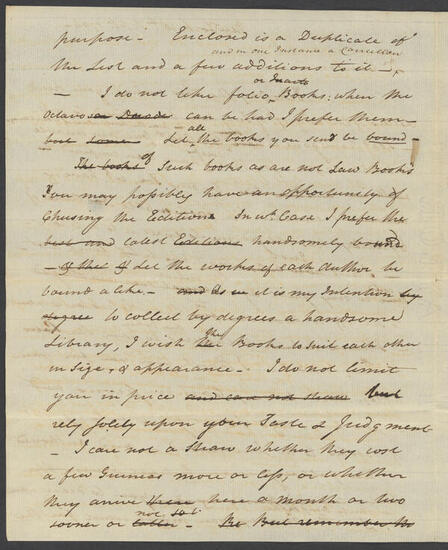 purpose - Enclosed is a Duplicate of
and in one Instance a Correction
the List and a few additions to it -
or Quarto
- I do not like folio Books: when the
Octavo or Duode can be had I prefer them -
all
but some Let the books you send be bound -
The books of Such books as are not Law Books
You may possibly have an opportunity of
Chusing the Editions In wh. Case I prefer the
best and latest Editions handsomely bound
- & that If Let the works of each Author be
bound alike - and as it is my Intention by
degree to collect by degrees a handsome
the
Library, I wish Books to suit each other
in Size, & appearance - I do not limit
you in price and care not straw but
rely solely upon your Taste & Judgment
- I care not a Straw whether they cost
a few Guineas more or less, or whether
they arrive there here a month or two
not so
sooner or latter - But remember